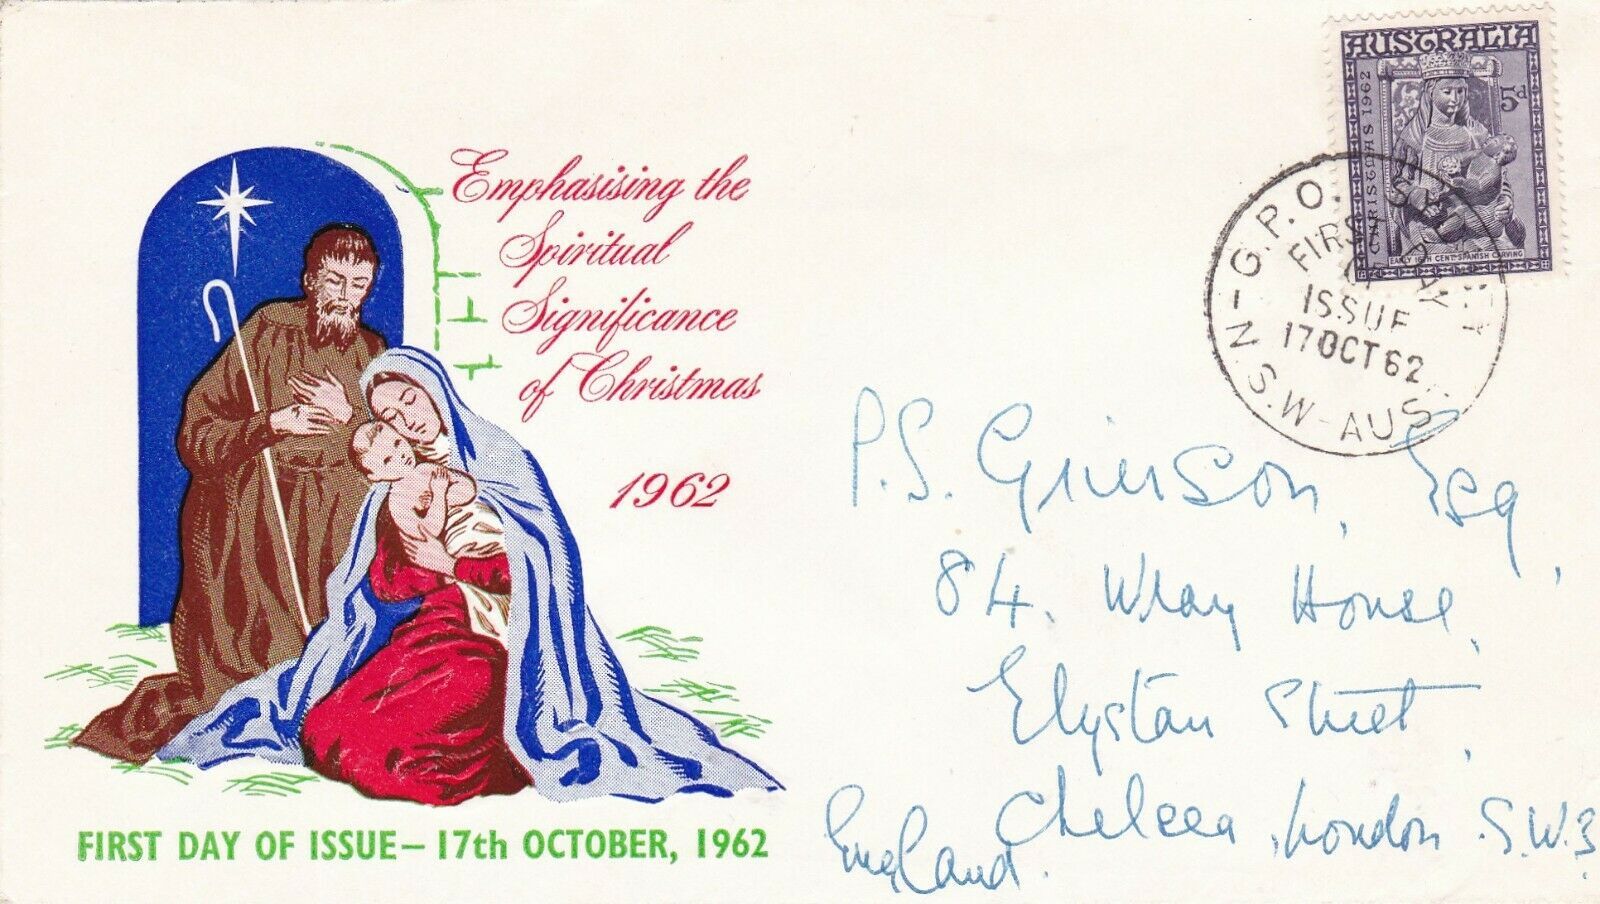 AUSTRALIA
CHRISTMAS 1962
5d
EARLY 16TH CENT. SPANISH CARVING
G.P.O. SYDNEY
FIRST DAY
ISSUE
17 OCT 62
N.S.W-AUST.
Emphasising the
Spiritual
Significance
of Christmas
1962
FIRST DAY OF ISSUE – 17th OCTOBER, 1962
P.S. Grierson, Esq,
84. Wray House,
Elystan Street,
Chelsea, London S.W.3
England.